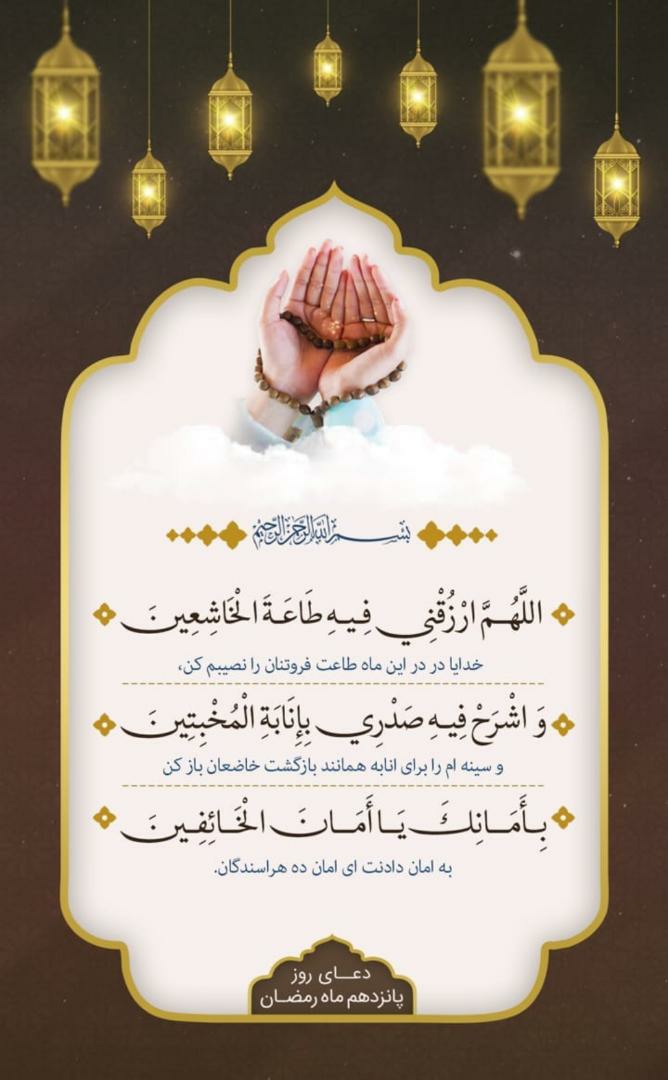 بسم الله الرحمن الرحیم
اللَّهُمَّ ارْزُقْنِي فِيهِ طَاعَةَ الْخَاشِعِينَ
خدایا در در این ماه طاعت فروتنان را نصیبم کن،
وَ اشْرَحْ فِيهِ صَدْرِي بِإِنَابَةِ الْمُخْبِتِينَ
و سینه ام را برای انابه همانند بازگشت خاضعان باز کن
بِأَمَانِكَ يَا أَمَانَ الْخَائِفِينَ
به امان دادنت ای امان ده هراسندگان.
دعای روز
پانزدهم ماه رمضان